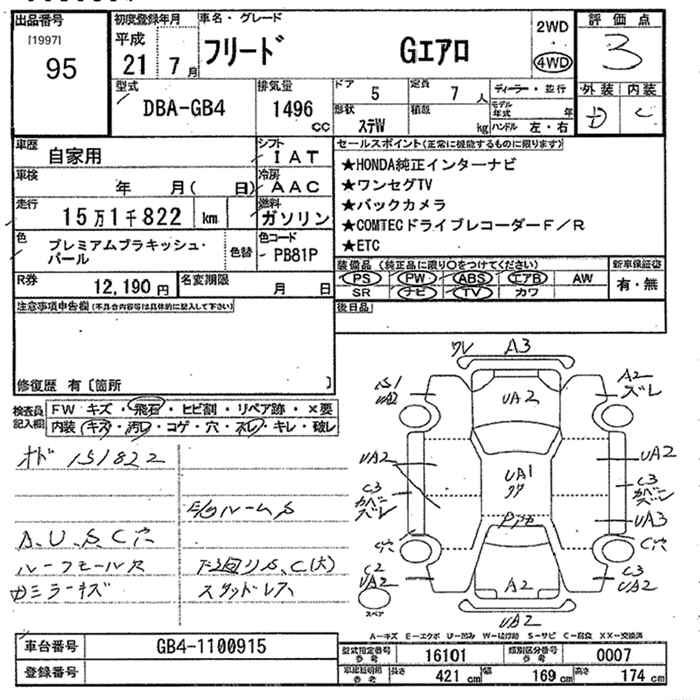 出品番号
[1997]
95
初度登録年月
平成
21 7月
車名・グレード
フリード Gエアロ
2WD
4WD
評価点
3
外装 内装
D C
型式
DBA-GB4
排気量
1496
cc
ドア
5
定員
7人
形状
ステW
積載
kg
ディーラー・並行
モデル年式 年
ハンドル 左・右
車歴
自家用
シフト
IAT
車検
年 月( 日)
冷房
AAC
走行
15万1千822 km
燃料
ガソリン
色
プレミアムブラキッシュ・パール
色替
色コード
PB81P
R券
12,190円
名変期限
月 日
セールスポイント(正常に機能するものに限ります)
★HONDA純正インターナビ
★ワンセグTV
★バックカメラ
★COMTECドライブレコーダーF/R
★ETC
装備品(純正品に限り○をつけてください)
新車保証書
PS PW ABS エアB AW
有・無
SR ナビ TV カワ
注意事項申告欄(不具合内容等は具体的に記入して下さい)
後日品
修復歴 有〔箇所 〕
検査員記入欄
FW キズ・飛石・ヒビ割・リペア跡・×要
内装 キズ・汚れ・コゲ・穴・スレ・キレ・破レ
オド 151822
内ルームS
A、U、S、C穴
ルーフモールス
下回りS、C(大)
ミラーキズ
スタッドレス
ワレ A3
S1
UA2
UA2
A2
ズレ
UA2
UA1
UA2
C3
カバー
ズレ
C3
カバー
ズレ
UA3
C穴
C穴
C2
UA2
A2
C3
UA2
UA2
スペア
A-キズ E-エクボ U-凹み W-波修跡 S-サビ C-腐食 XX-交換済
車台番号
GB4-1100915
登録番号
型式指定番号
参考
16101
類別区分番号
参考
0007
車検証明細
参考
長さ
421 cm
幅
169 cm
高さ
174 cm